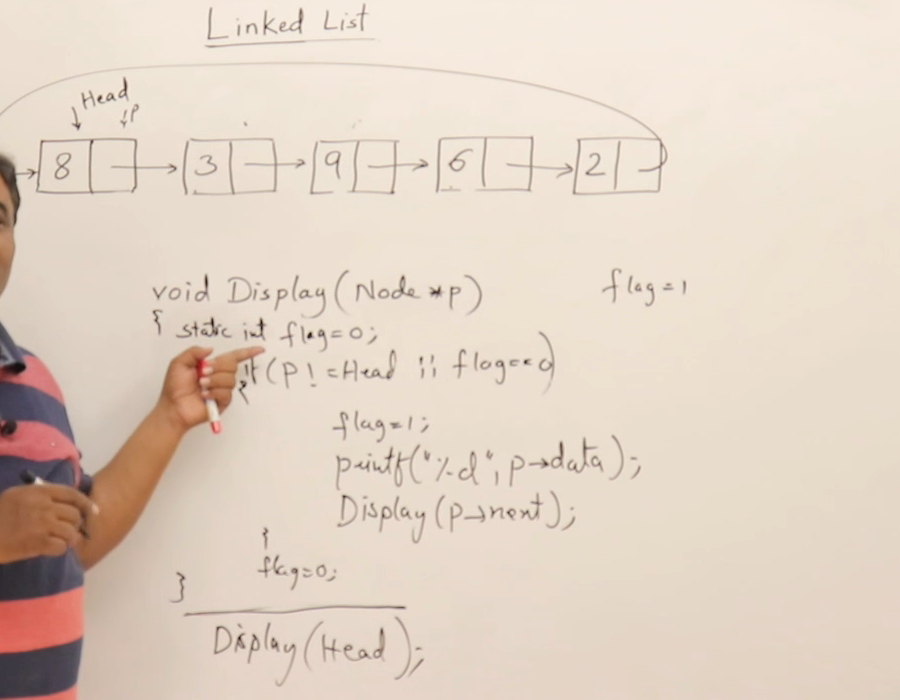 Linked List
Head
P
8 3 9 6 2
void Display(Node *p) flag=1
{ static int flag=0;
if(P!=Head || flag==0)
{
flag=1;
printf("%d", p→data);
Display(p→next);
}
flag=0;
}
Display(Head);